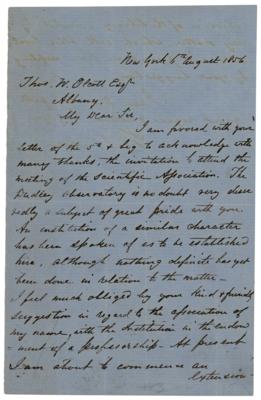 New York 6th August 1856
Thos. W. Olcott Esqr
Albany.
My Dear Sir,
I am favored with your
letter of the 5th & beg to acknowledge with
many thanks, the invitation to attend the
meeting of the Scientific Association. The
Dudley observatory is no doubt very deser
vedly a subject of great pride with you.
An institution of a similar character
has been spoken of as to be established
here, although nothing definite has yet
been done in relation to the matter —
I feel much obliged by your kind & friendly
suggestion in regard to the association of
my name, with the Institution in the endow
-ment of a professorship — At present
I am about to commence an
extension